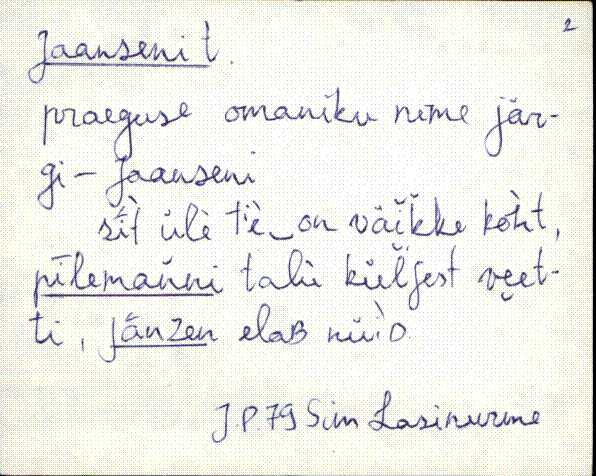 2
Jaanseni t.
praeguse omaniku nime jär-
gi - Jaanseni
sìt̀ ülè tìè on väĭkke kòht,
pīlemaǔni talù küĕljest vĕet-
ti, jänzen elaʙ nüìᴅ.
J.P. 79 Sim Lasinurme